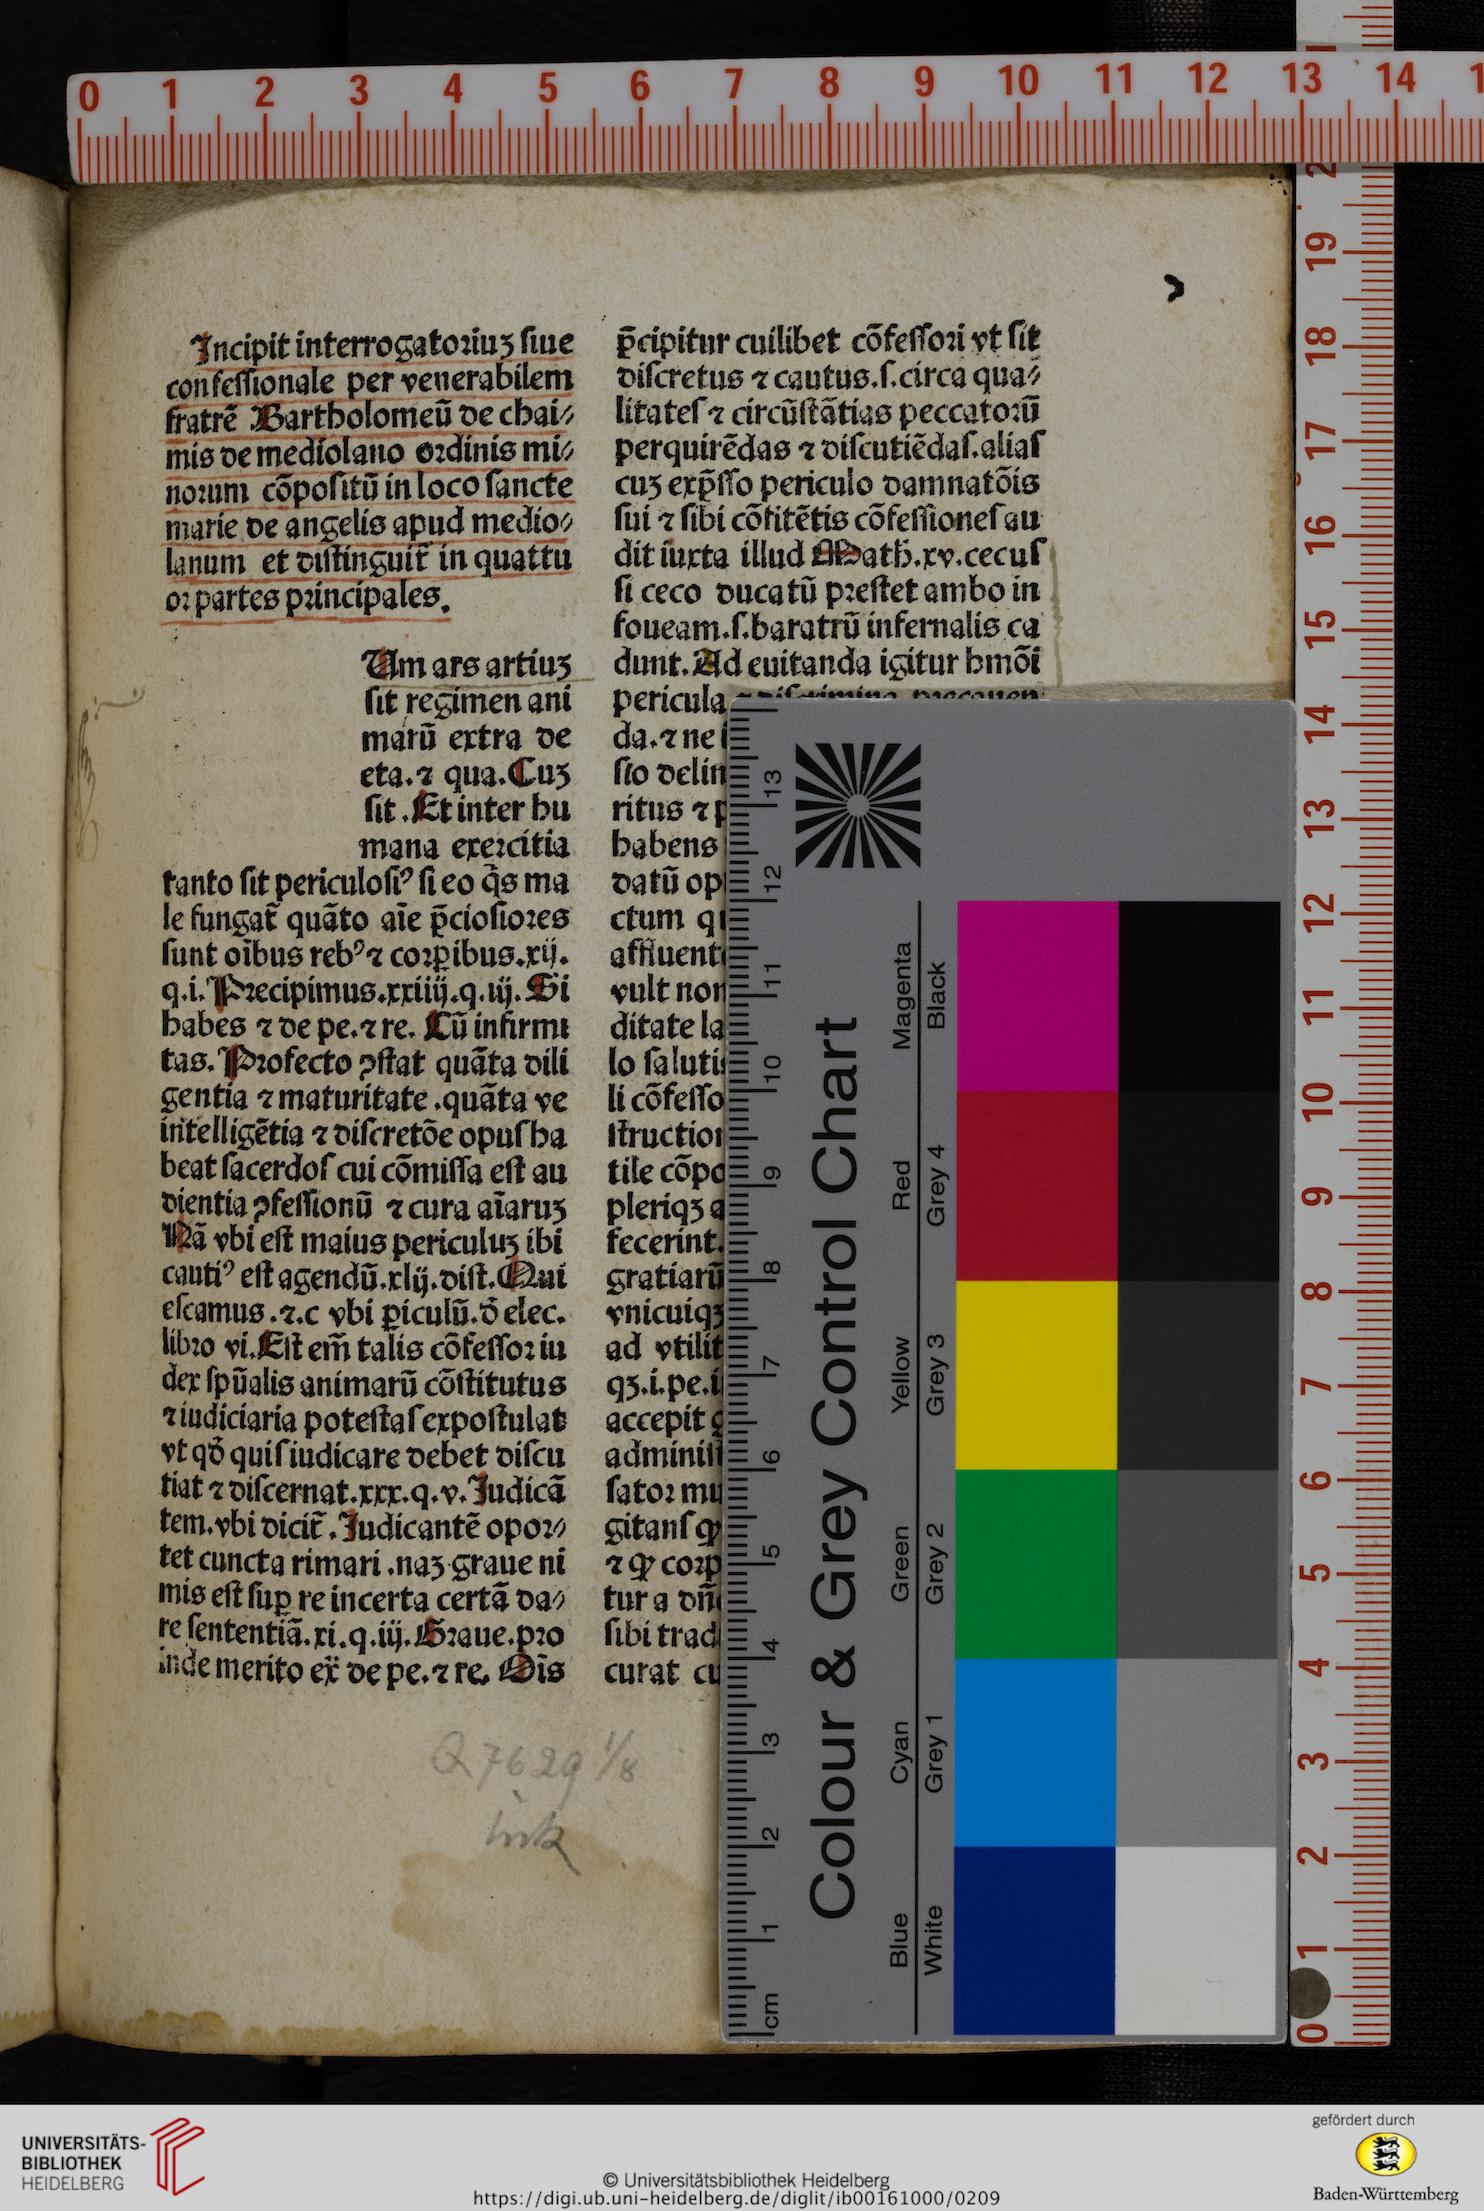 Incipit interrogatoriuʒ ſiue
confeſſionale per venerabilem
fratrē Bartholomeū de chai⸗
mis de mediolano ordinis mi⸗
norum cōpoſitū in loco ſancte
marie de angelis apud medio⸗
lanum et diſtinguit̃ in quattu
or partes principales.
Um ars artiuʒ
ſit regimen ani
marū extra de
eta. ⁊ qua. Cuʒ
ſit. Et inter hu
mana exercitia
tanto ſit periculoſiꝰ ſi eo q̄s ma
le fungat̃ quāto aīe p̄cioſiores
ſunt oībus rebꝰ ⁊ corꝑibus. xij.
q. i. Precipimus. xxiiij. q. iij. Si
habes ⁊ de pe. ⁊ re. Cū infirmi
tas. Profecto ꝯſtat quāta dili
gentia ⁊ maturitate. quāta ve
intelligētia ⁊ diſcretōe opuſ ha
beat ſacerdoſ cui cōmiſſa eſt au
dientia ꝯfeſſionū ⁊ cura aīaruʒ
Nā vbi eſt maius periculuʒ ibi
cautiꝰ eſt agendū. xlij. diſt. Qui
eſcamus. ⁊. c vbi ꝑiculū. đ elec.
libro vi. Eſt em̄ talis cōfeſſor iu
dex ſpūalis animarū cōſtitutus
⁊ iudiciaria poteſtaſ expoſtulat
vt qđ quiſ iudicare debet diſcu
tiat ⁊ diſcernat. xxx. q. v. Judicā
tem. vbi dicit̃. Judicantē opor⸗
tet cuncta rimari. naʒ graue ni
mis eſt ſuꝑ re incerta certā da⸗
re ſententiā. xi. q. iij. Graue. pro
inde merito ex̄ de pe. ⁊ re. Oīs
p̄cipitur cuilibet cōfeſſori vt ſit
diſcretus ⁊ cautus. ſ. circa qua⸗
litateſ ⁊ circūſtātias peccatorū
perquirēdas ⁊ diſcutiēdaſ. aliaſ
cuʒ exp̄ſſo periculo damnatōis
ſui ⁊ ſibi cōfitētis cōfeſſioneſ au
dit iuxta illud Math̄. xv. cecuſ
ſi ceco ducatū preſtet ambo in
foueam. ſ. baratrū infernalis ca
dunt. Ad euitanda igitur hmōi
pericula ⁊ diſcrimina precauen
da. ⁊ ne
ſio delin
ritus ⁊ p
habens
datū op
ctum q
affluent
vult non
ditate la
lo ſaluti
li cōfeſſo
ſtruction
tile cōpo
pleriqʒ a
fecerint.
gratiarū
vnicuiqʒ
ad vtilit
qʒ. i. pe. i
accepit
adminiſt
ſator mu
gitanſ ꝙ
⁊ ꝙ corp
tur a dn̄
ſibi trad
curat cu
Q 7629 1/8
ink
0 1 2 3 4 5 6 7 8 9 10 11 12 13 14 1
2 19 18 17 16 15 14 13 12 11 10 9 8 7 6 5 4 3 2 1 0
13 12 11 10 9 8 7 6 5 4 3 2 1 cm
Colour & Grey Control Chart
Blue Cyan Green Yellow Red Magenta
White Grey 1 Grey 2 Grey 3 Grey 4 Black
UNIVERSITÄTS-
BIBLIOTHEK
HEIDELBERG
© Universitätsbibliothek Heidelberg
https://digi.ub.uni-heidelberg.de/diglit/ib00161000/0209
gefördert durch
Baden-Württemberg